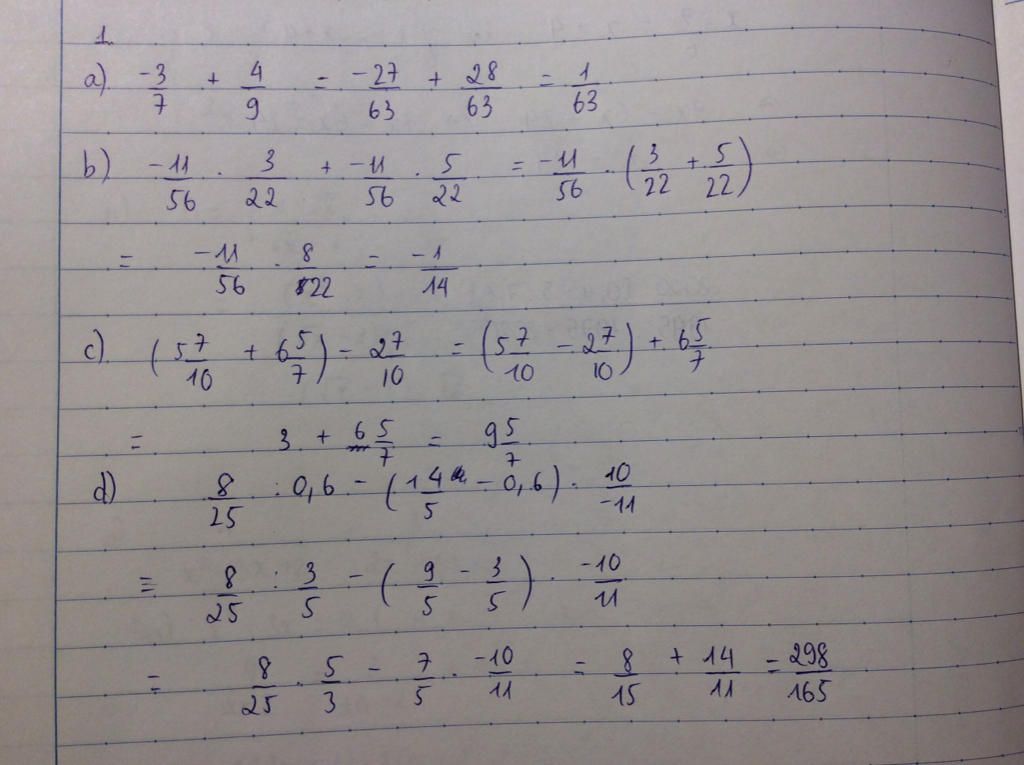 1.
a) -3/7 + 4/9 = -27/63 + 28/63 = 1/63
b) -11/56 . 3/22 + -11/56 . 5/22 = -11/56 . (3/22 + 5/22)
= -11/56 . 8/22 = -1/14
c) (5 7/10 + 6 5/7) - 2 7/10 = (5 7/10 - 2 7/10) + 6 5/7
= 3 + 6 5/7 = 9 5/7
d) 8/25 : 0,6 - (1 4/5 - 0,6) . 10/-11
= 8/25 : 3/5 - (9/5 - 3/5) . -10/11
= 8/25 . 5/3 - 7/5 . -10/11 = 8/15 + 14/11 = 298/165